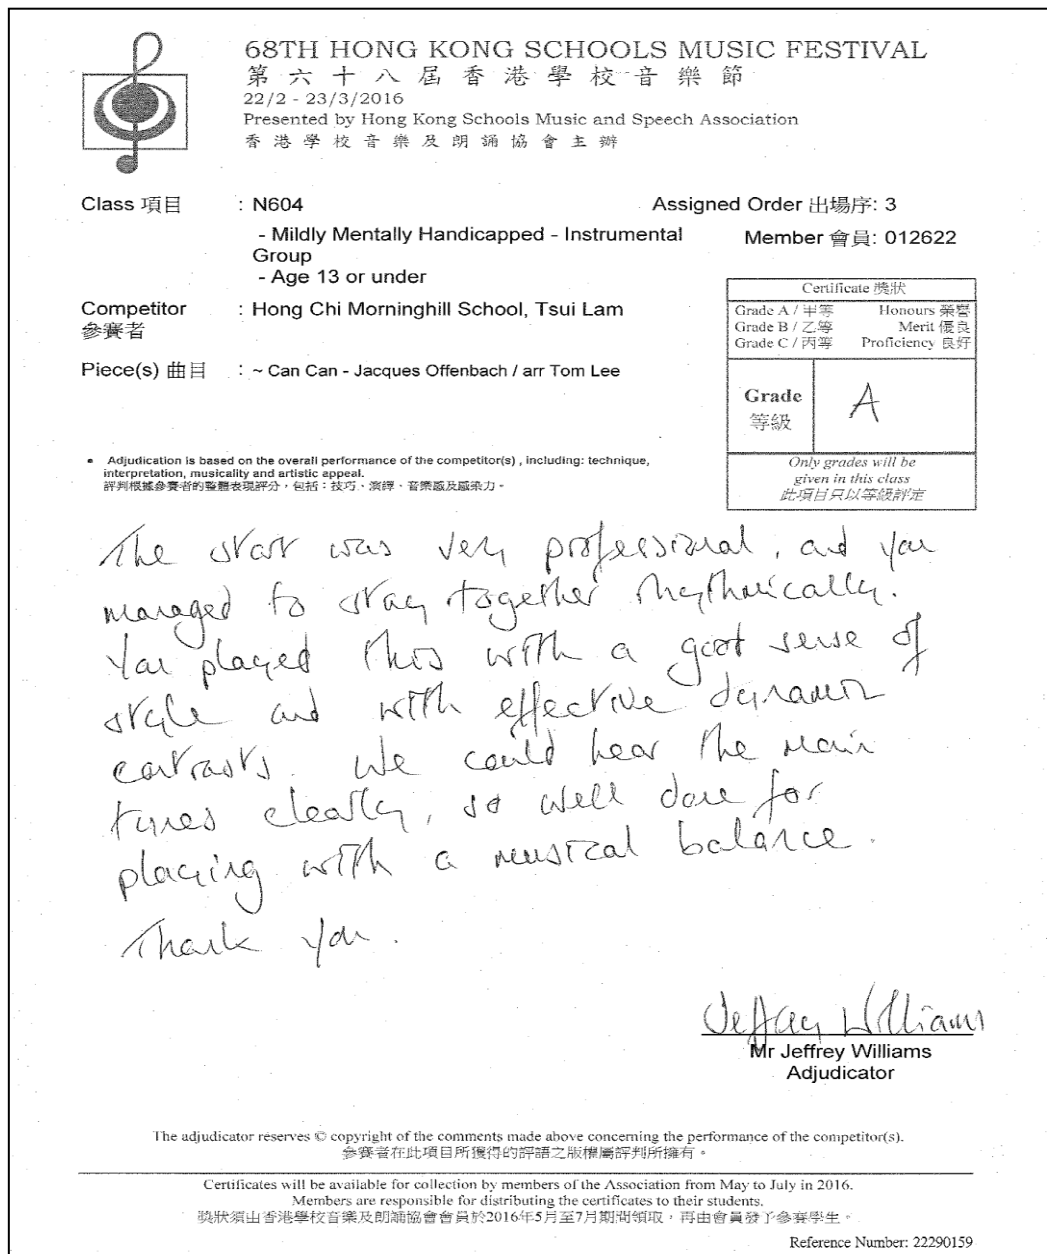 68TH HONG KONG SCHOOLS MUSIC FESTIVAL
第六十八屆香港學校音樂節
22/2 - 23/3/2016
Presented by Hong Kong Schools Music and Speech Association
香港學校音樂及朗誦協會主辦
Class 項目 : N604
Assigned Order 出場序: 3
- Mildly Mentally Handicapped - Instrumental
Group
- Age 13 or under
Member 會員: 012622
Competitor : Hong Chi Morninghill School, Tsui Lam
參賽者
Piece(s) 曲目 : ~ Can Can - Jacques Offenbach / arr Tom Lee
Certificate 獎狀
Grade A / 甲等 Honours 榮譽
Grade B / 乙等 Merit 優良
Grade C / 丙等 Proficiency 良好
Grade A
等級
Only grades will be
given in this class
此項目只以等級評定
• Adjudication is based on the overall performance of the competitor(s) , including: technique,
interpretation, musicality and artistic appeal.
評判根據參賽者的整體表現評分，包括：技巧、演繹、音樂感及感染力。
The start was very professional, and you
managed to stay together rhythmically.
You played this with a good sense of
style and with effective dynamic
contrasts. We could hear the main
tunes clearly, so well done for
playing with a musical balance.
Thank you.
Jeffrey Williams
Mr Jeffrey Williams
Adjudicator
The adjudicator reserves © copyright of the comments made above concerning the performance of the competitor(s).
參賽者在此項目所獲得的評語之版權屬評判所擁有。
Certificates will be available for collection by members of the Association from May to July in 2016.
Members are responsible for distributing the certificates to their students.
獎狀須由香港學校音樂及朗誦協會會員於2016年5月至7月期間領取，再由會員發予參賽學生。
Reference Number: 22290159